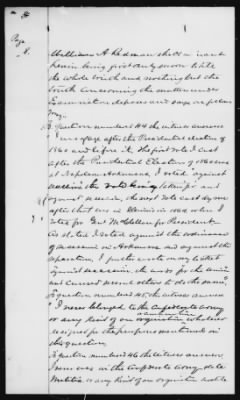 Page
8.
William A. Redman the claimant
herein being first duly sworn to tell
the whole truth and nothing but the
truth concerning the matter under
Examination deposes and says as follows
To question numbered 44 the witness answers
after the Presidential election of
1860 and before it, the first vote I cast
after the Presidential Election of 1860 was
at Napoleon Arkansas, I voted against
the vote being
against secession, the next vote cast by me
after that was in Illinois in 1864 when I
voted for Genl McClellan for President
as stated I voted against the ordinance
of secession in Arkansas and against the
separation, I just wrote on my ballot
against secession,
and caused several others to do the same
To question numbered 45 the witness answers
I never belonged to the Confederate Army
or any kind of an organization whatever
for the purposes mentioned in
this question.
To question numbered 46 the witness answers
I never was in the Confederate Army, State
Militia or any kind of an organization